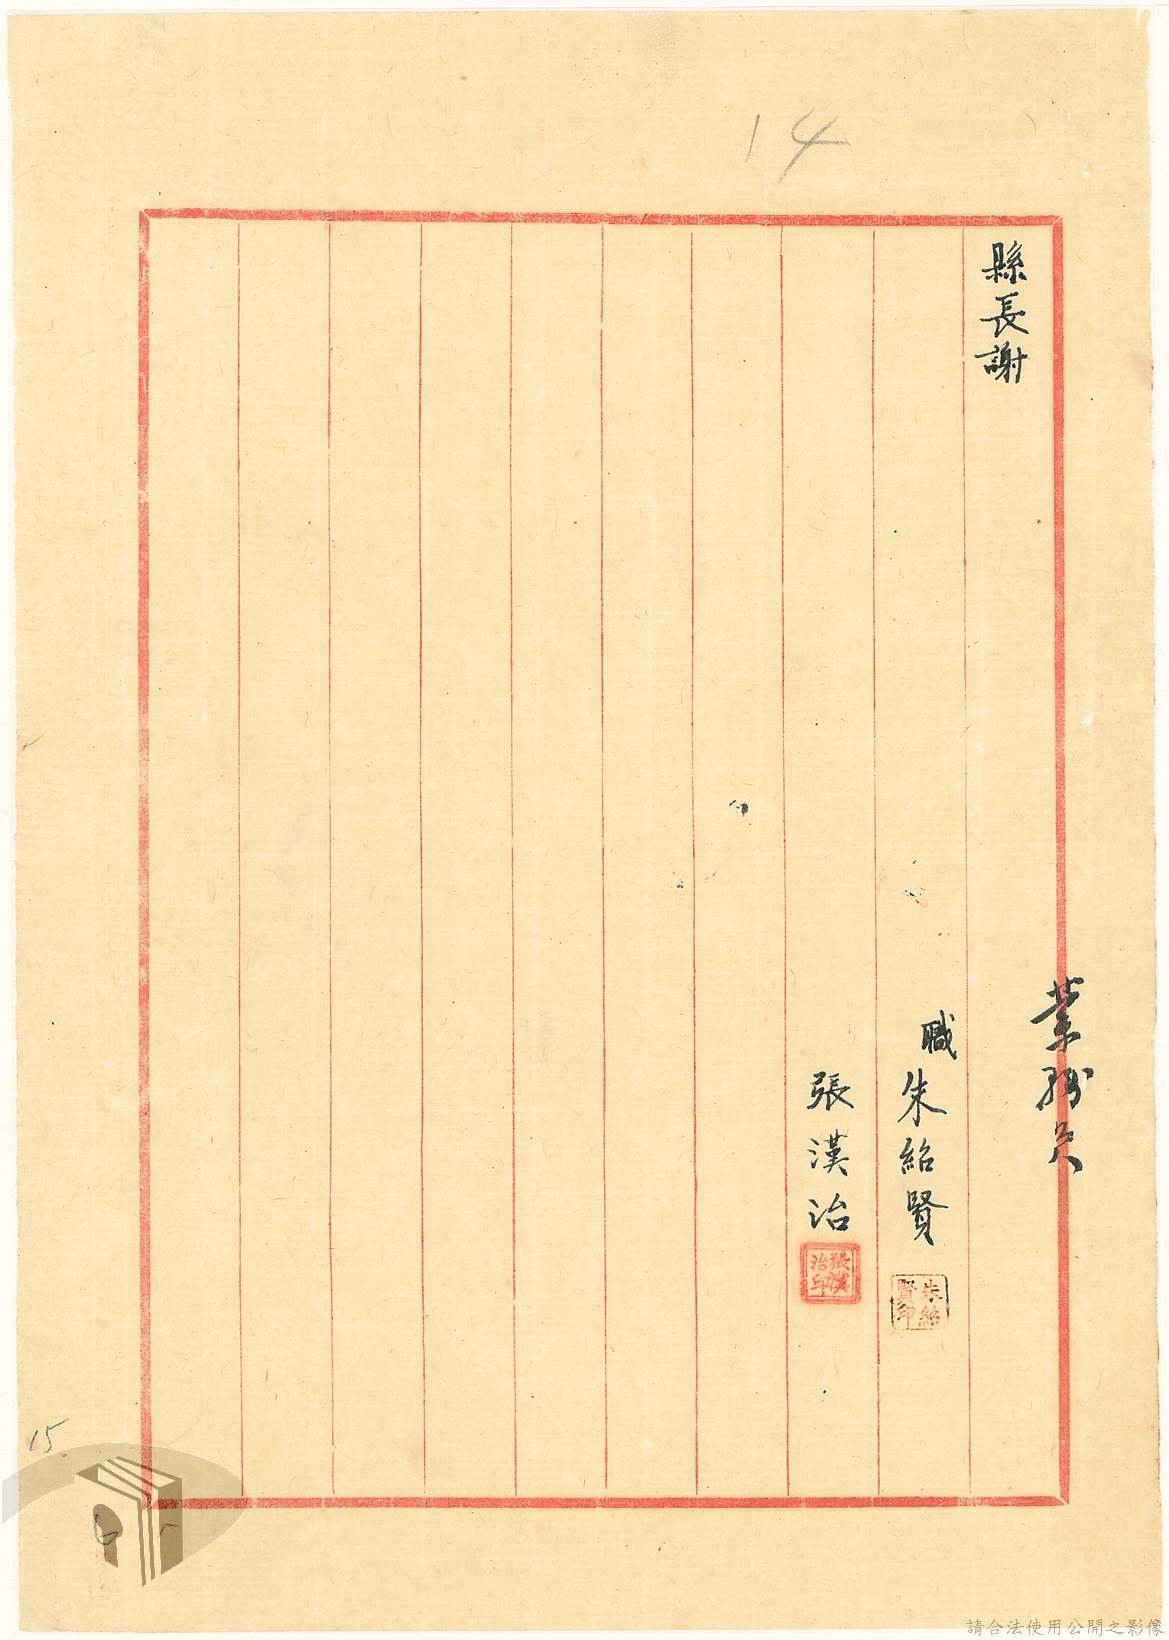 14
縣長謝
業務員
職朱紹賢
朱紹賢印
張漢治
張漢治印
15
6
請合法使用公開之影像